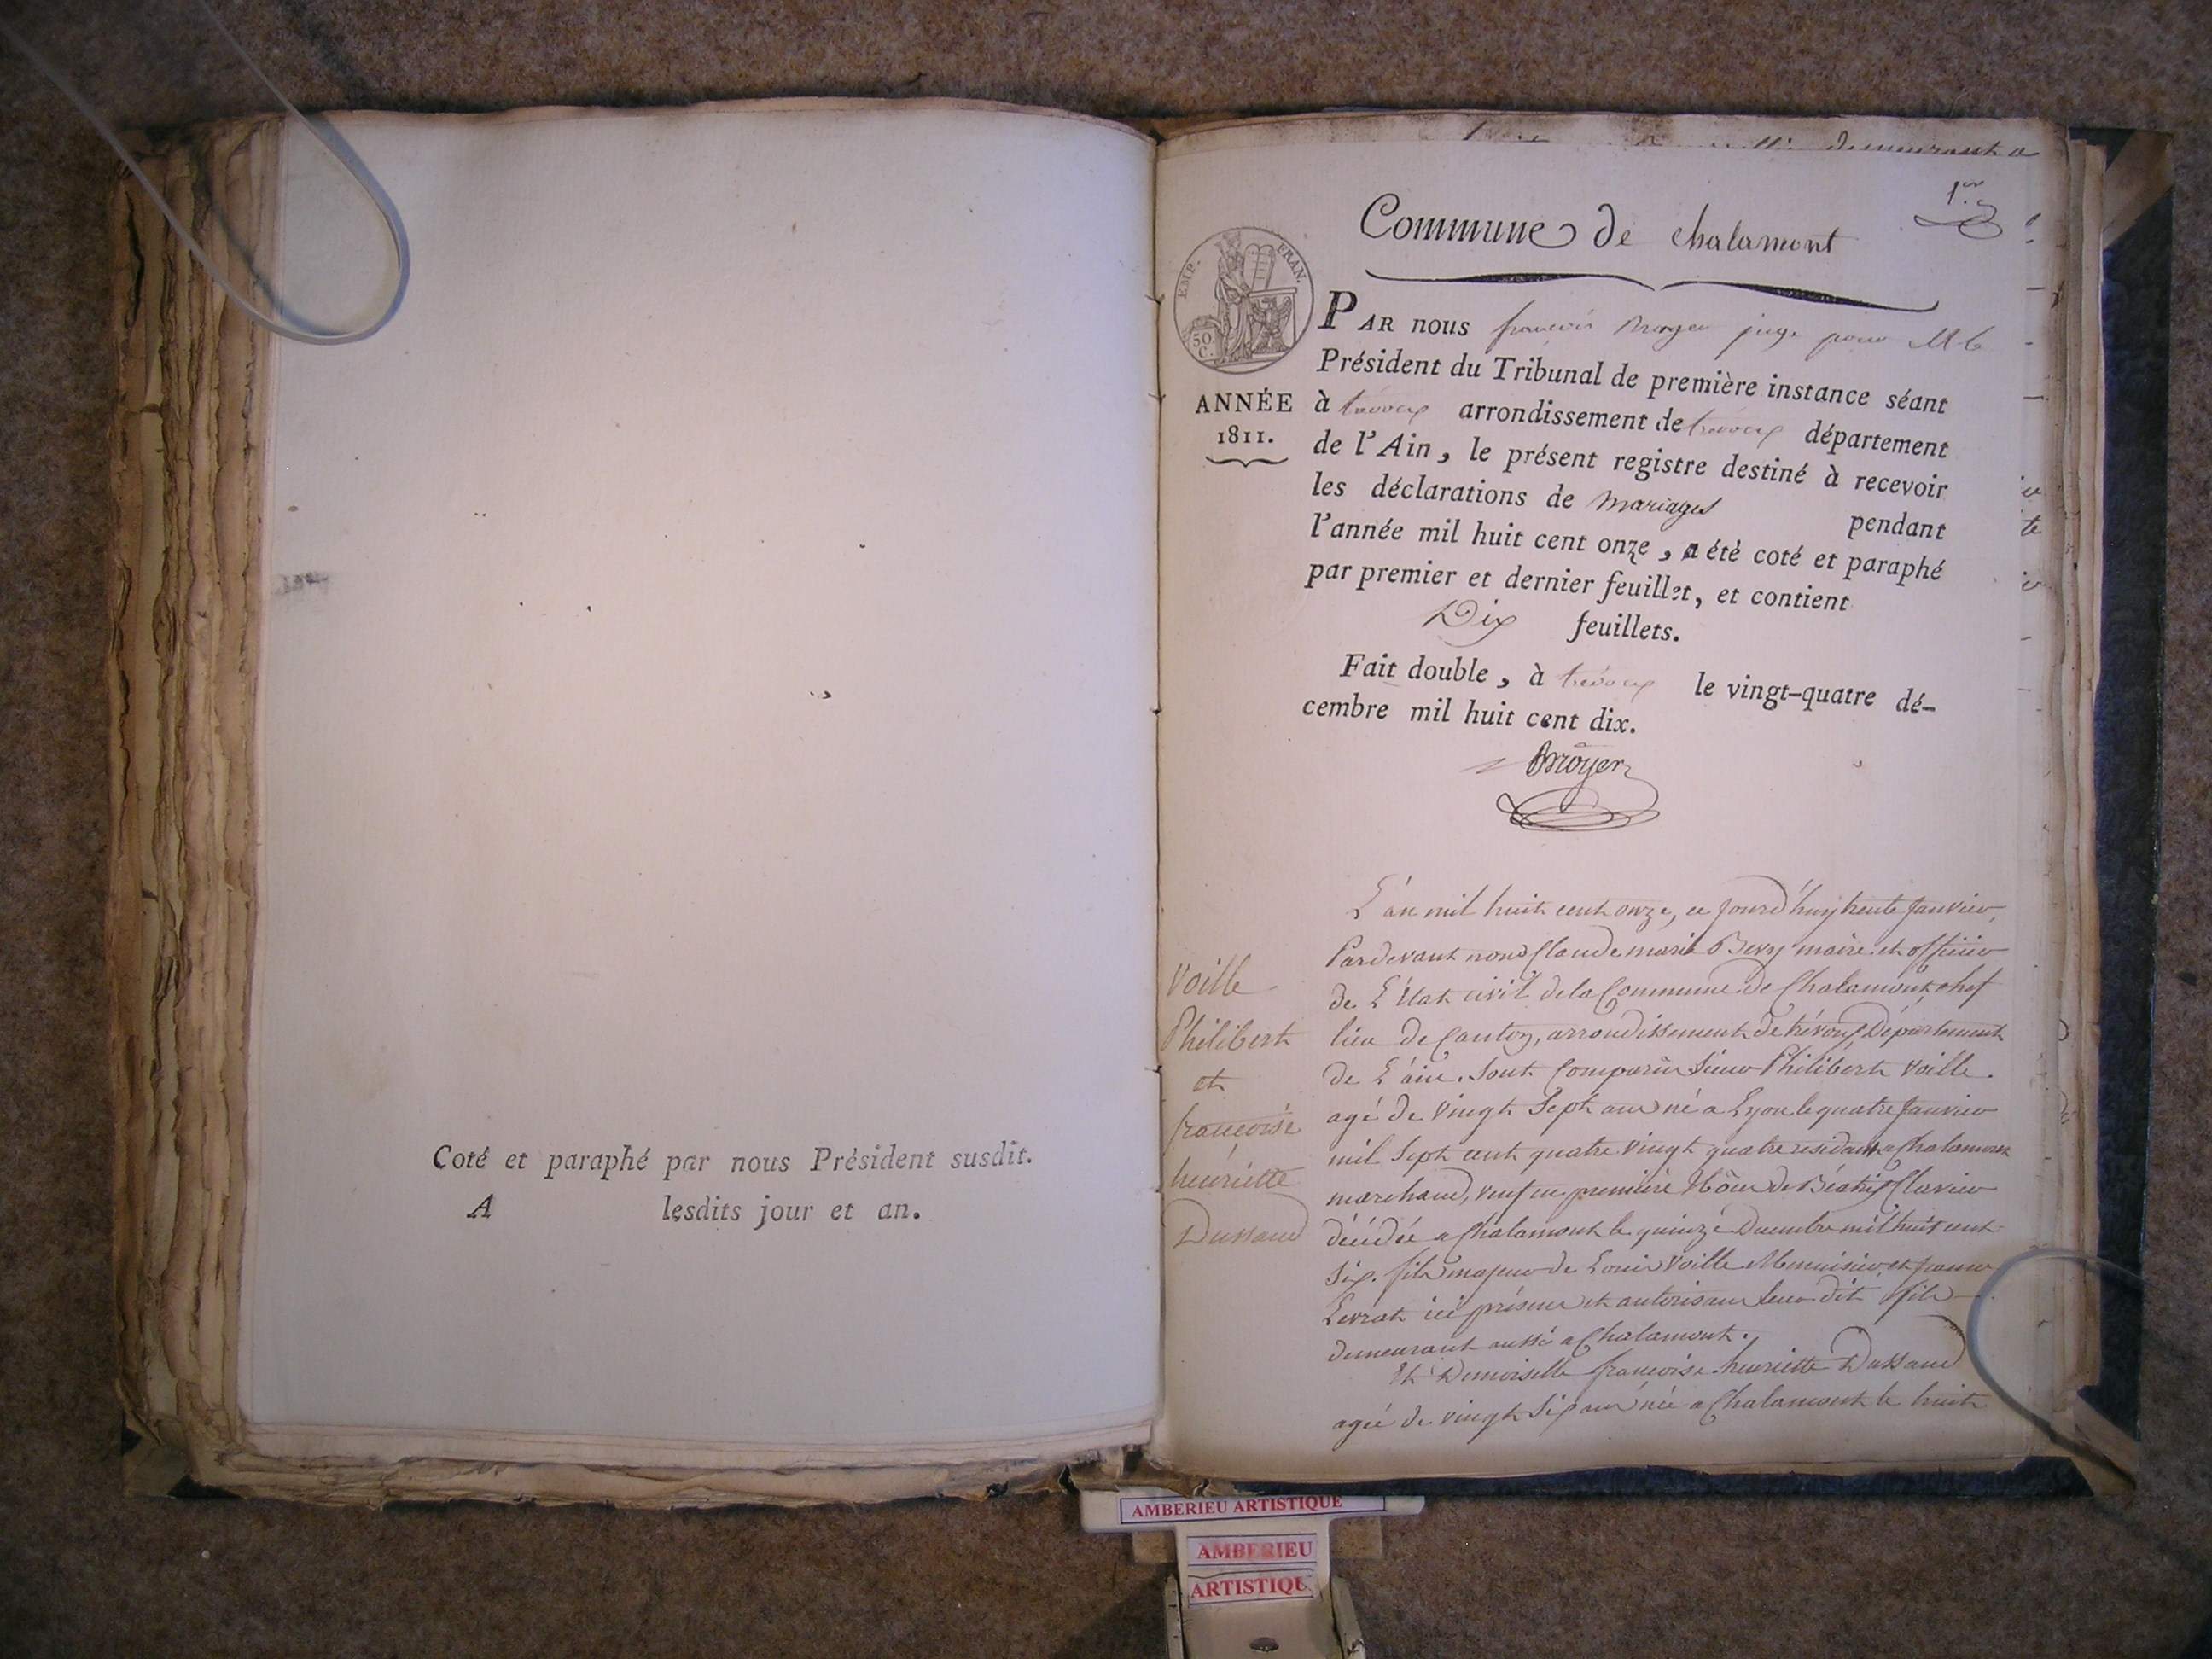 Coté et paraphé par nous Président susdit.
A lesdits jour et an.
demeurant a
1.er
Commune de chalamont
EMP. FRAN.
50 C.
ANNÉE
1811.
PAR nous françois Broyer juge pour M. le
Président du Tribunal de première instance séant
à trévoux arrondissement de trévoux département
de l'Ain, le présent registre destiné à recevoir
les déclarations de mariages pendant
l'année mil huit cent onze, a été coté et paraphé
par premier et dernier feuillet, et contient
Dix feuillets.
Fait double, à trévoux le vingt-quatre dé-
cembre mil huit cent dix.
Broyer
Voille
Philibert
et
françoise
henriette
Dussaud
L'an mil huit cent onze, ce jourd'huy trente janvier,
Pardevant nous Claude marie Bevy maire et officier
de L'État civil de la Commune de Chalamont chef
lieu de Canton, arrondissement de trévoux, Département
de L'ain. Sont Comparus Sieur Philibert Voille.
agé de vingt Sept ans né a Lyon le quatre janvier
mil Sept cent quatre vingt quatre residant a Chalamont
marchand, veuf en premiere Nôce de Béatrix Clavier
décédée a Chalamont le quinze Decembre mil huit cent
Six. fils majeur de Louis Voille Menuisier et
Levrat ici présens et autorisant leur dit fils
demeurant aussi a Chalamont.
Et Demoiselle françoise henriette Dussaud
agée de vingt Six ans née a Chalamont le huit
AMBERIEU ARTISTIQUE
AMBERIEU
ARTISTIQU